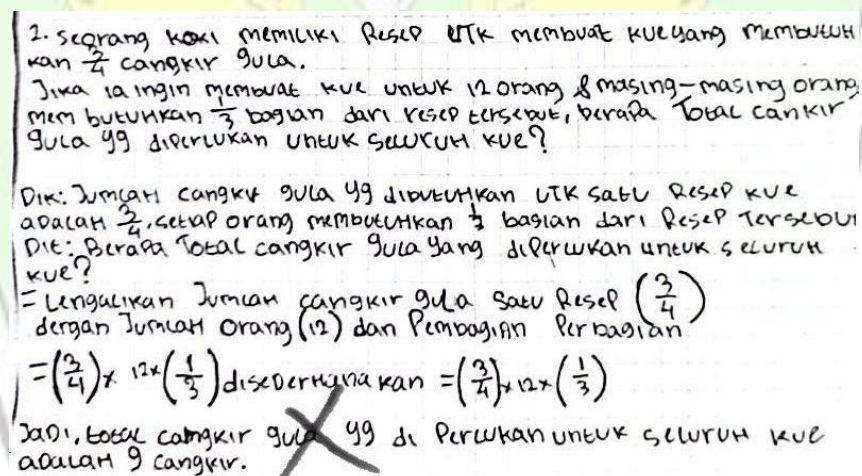 2. Seorang koki memiliki Resep UTK membuat kue yang membutuh
kan 3/4 cangkir gula.
Jika ia ingin membuat kue untuk 12 orang & masing-masing orang
membutuhkan 1/3 bagian dari resep tersebut, berapa Total cankir
gula yg diperlukan untuk seluruh kue?
Dik: Jumlah cangkir gula yg dibutuhkan UTK satu Resep kue
adalah 3/4. setiap orang membutuhkan 1/3 bagian dari Resep Tersebut
Dit: Berapa Total cangkir gula yang diperlukan untuk seluruh
kue?
= Lengalikan Jumlah cangkir gula satu Resep (3/4)
dengan Jumlah orang (12) dan Pembagian Perbagian
= (3/4) x 12 x (1/3) disederhanakan = (3/4) x 12 x (1/3)
Jadi, total camgkir gula yg di Perlukan untuk seluruh kue
adalah 9 cangkir.